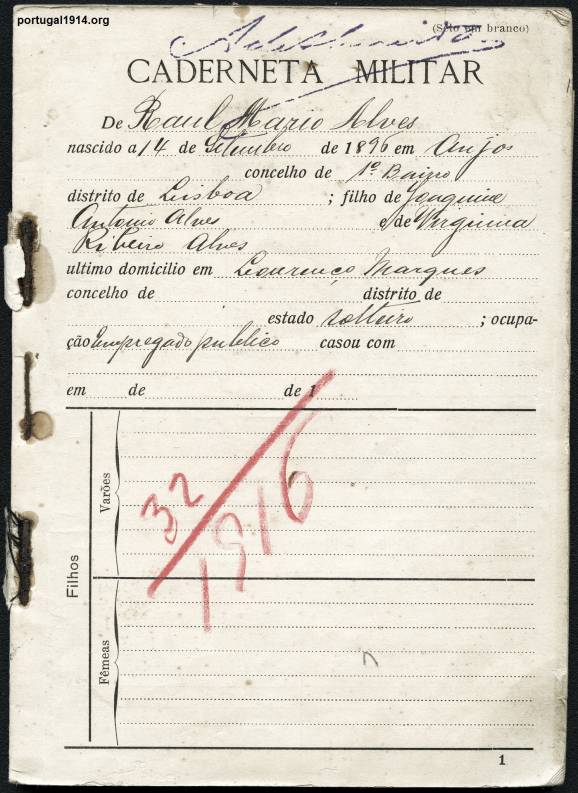 portugal1914.org
(Selo em branco)
CADERNETA MILITAR
De Raul Mario Alves
nascido a 14 de Setembro de 1896 em Anjos
concelho de 1º Bairro
distrito de Lisboa ; filho de Joaquim
Antonio Alves e de Virginia
Ribeiro Alves
ultimo domicilio em Lourenço Marques
concelho de distrito de
estado solteiro ; ocupa-
ção Empregado publico casou com
em de de 1
Filhos
Varões
32
1916
Fêmeas
1